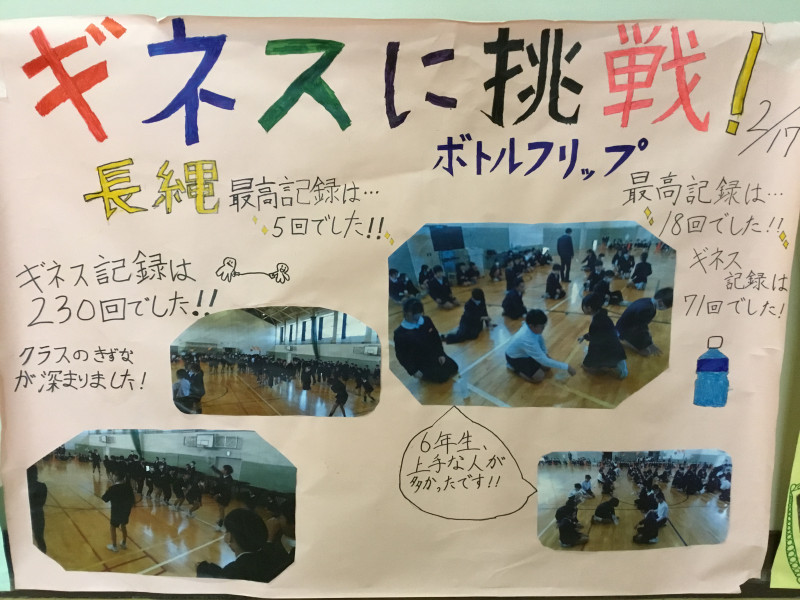 ギネスに挑戦!
2/17
長縄
最高記録は…
5回でした!!
ギネス記録は
230回でした!!
クラスのきずな
が深まりました!
ボトルフリップ
最高記録は…
18回でした!!
ギネス
記録は
71回でした!
6年生、
上手な人が
多かったです!!